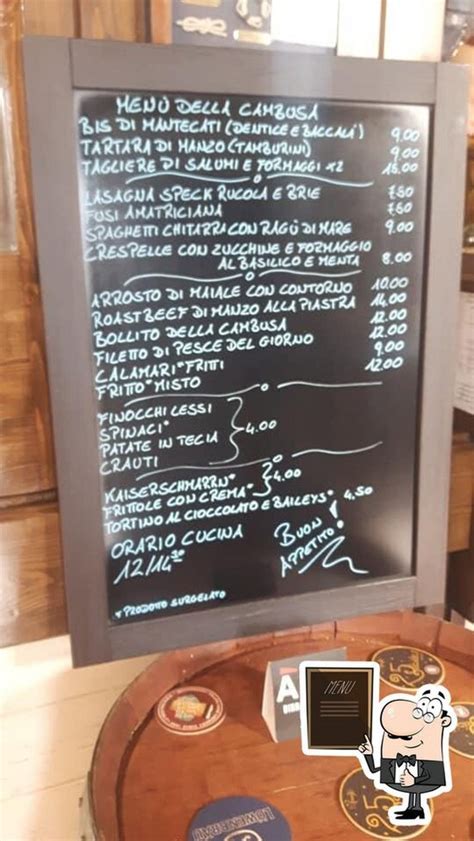 MENÙ DELLA CAMBUSA
BIS DI MANTECATI (DENTICE E BACCALA') 9,00
TARTARA DI MANZO (TAMBURINI) 9,00
TAGLIERE DI SALUMI E FORMAGGI x2 15,00
LASAGNA SPECK RUCOLA E BRIE 7,50
FUSI AMATRICIANA 7,50
SPAGHETTI CHITARRA CON RAGÙ DI MARE 9.00
CRESPELLE CON ZUCCHINE E FORMAGGIO
AL BASILICO E MENTA 8.00
ARROSTO DI MAIALE CON CONTORNO 10.00
ROAST BEEF DI MANZO ALLA PIASTRA 14,00
BOLLITO DELLA CAMBUSA 12.00
FILETTO DI PESCE DEL GIORNO 12.00
CALAMARI* FRITTI 9.00
FRITTO* MISTO 12.00
FINOCCHI LESSI
SPINACI*
PATATE IN TECIA
CRAUTI
4.00
KAISERSCHMARRN*
FRITTOLE CON CREMA*
4.00
TORTINO AL CIOCCOLATO E BAILEYS* 4,50
ORARIO CUCINA
12/14³⁰
BUON
APPETITO!
* PRODOTTO SURGELATO
MENU
LÖWENBRÄU